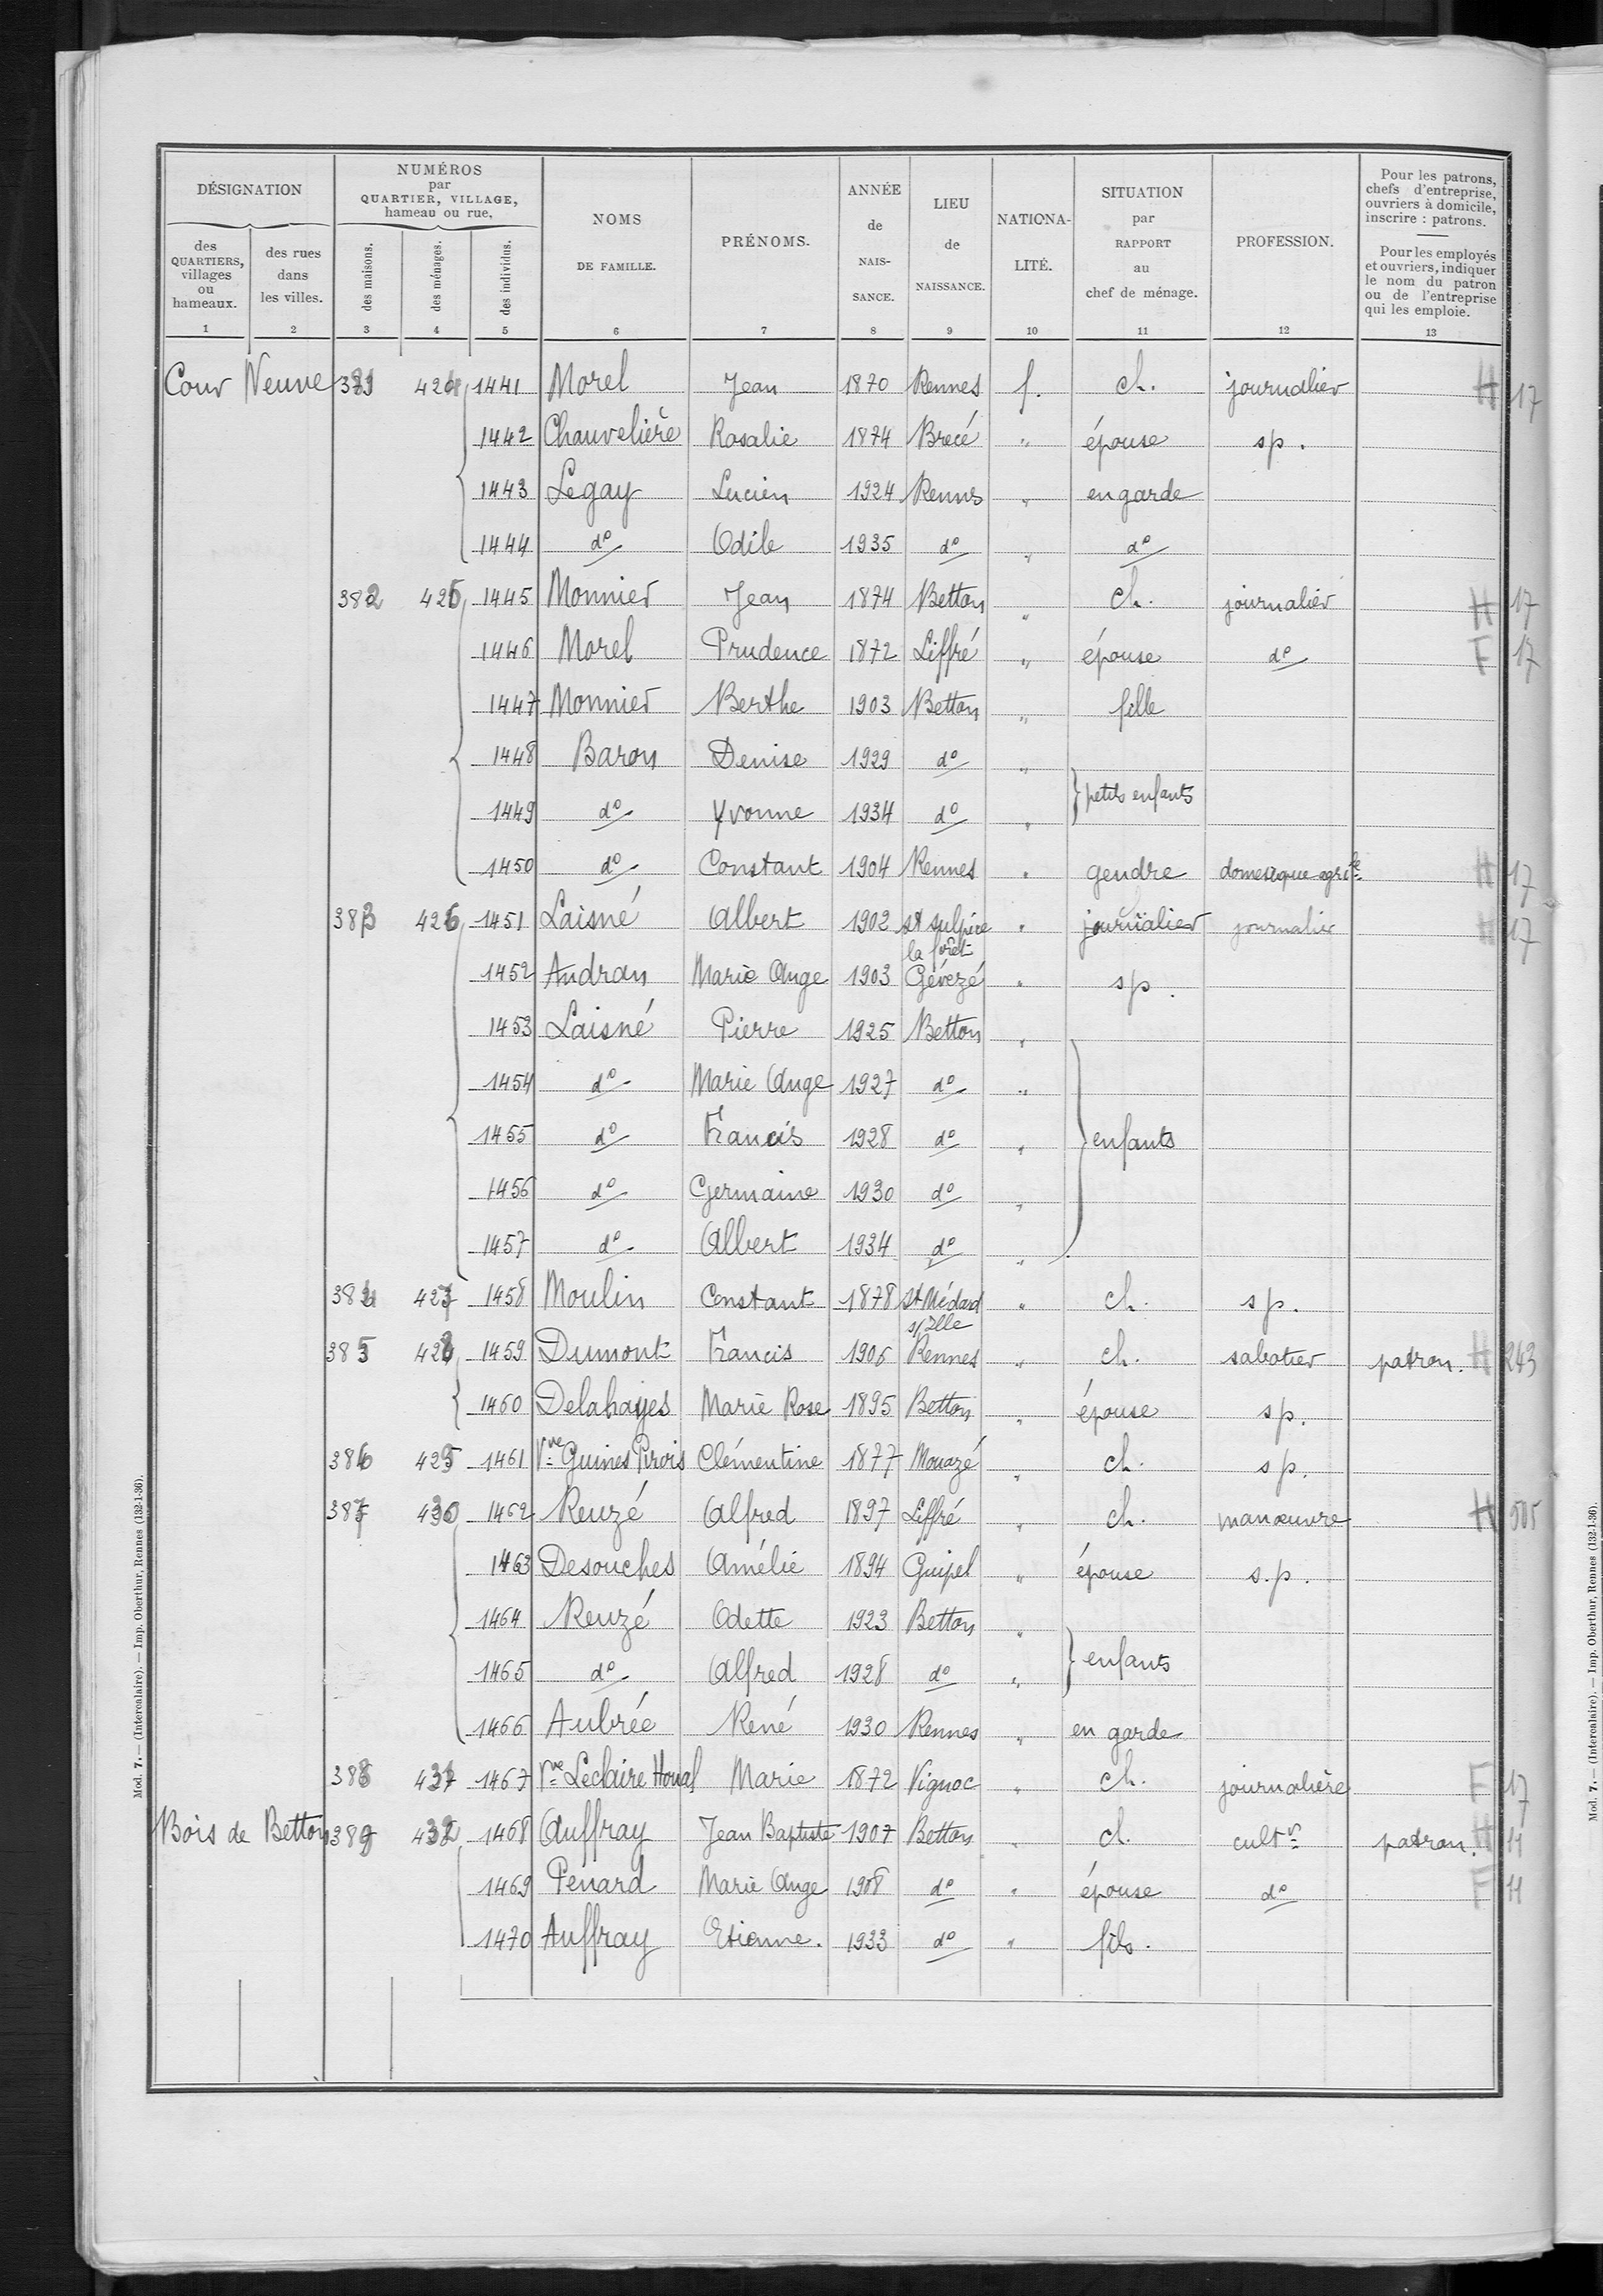 DÉSIGNATION
NUMÉROS
par
QUARTIER, VILLAGE,
hameau ou rue.
des QUARTIERS, villages ou hameaux.
des rues dans les villes.
des maisons.
des ménages.
des individus.
NOMS DE FAMILLE.
PRÉNOMS.
ANNÉE de NAIS-SANCE.
LIEU de NAISSANCE.
NATIONA-LITÉ.
SITUATION par RAPPORT au chef de ménage.
PROFESSION.
Pour les patrons, chefs d'entreprise, ouvriers à domicile, inscrire : patrons.
Pour les employés et ouvriers, indiquer le nom du patron ou de l'entreprise qui les emploie.
1 2 3 4 5 6 7 8 9 10 11 12 13
Cour Neuve 381 424 1441 Morel Jean 1870 Rennes f. ch. journalier H 17
1442 Chauvelière Rosalie 1874 Brecé " épouse sp.
1443 Legay Lucien 1924 Rennes " en garde
1444 do Odile 1935 do " do
382 425 1445 Monnier Jean 1874 Betton " ch. journalier H 17
1446 Morel Prudence 1872 Liffré " épouse do F 17
1447 Monnier Berthe 1903 Betton " fille
1448 Baron Denise 1929 do "
petits enfants
1449 do Yvonne 1934 do "
1450 do Constant 1904 Rennes " gendre domestique agrile H 17
383 426 1451 Laisné Albert 1902 St Sulpice la forêt " journalier journalier H 17
1452 Andran Marie Ange 1903 Gévezé " sp.
1453 Laisné Pierre 1925 Betton "
1454 do Marie Ange 1927 do "
1455 do Francis 1928 do " enfants
1456 do Germaine 1930 do "
1457 do Albert 1934 do "
384 427 1458 Moulin Constant 1878 St Médard s/Ille " ch. sp.
385 428 1459 Dumont Francis 1906 Rennes " ch. sabotier patron. H 243
1460 Delahayes Marie Rose 1895 Betton " épouse sp.
386 429 1461 Vve Guines Pirois Clémentine 1877 Mouazé " ch. sp.
387 430 1462 Reuzé Alfred 1897 Liffré " ch. manœuvre H 505
1463 Desouches Amélie 1894 Guipel " épouse s.p.
1464 Reuzé Odette 1923 Betton "
enfants
1465 do Alfred 1928 do "
1466 Aubrée René 1930 Rennes " en garde
388 431 1467 Vve Leclaire Houal Marie 1872 Vignoc " ch. journalière F 17
Bois de Betton 389 432 1468 Auffray Jean Baptiste 1907 Betton " ch. cultr patron. H 11
1469 Penard Marie Ange 1908 do " épouse do F 11
1470 Auffray Etienne. 1933 do " fils.
Mod. 7. — (Intercalaire). — Imp. Oberthur, Rennes (132-1-36).
Mod. 7. — (Intercalaire). — Imp. Oberthur, Rennes (132-1-36).